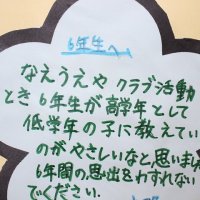 6年生へ
なえうえや クラブ活動
とき 6年生が高学年として
低学年の子に教えてい
のがやさしいなと思いまし
6年間の思出をわすれない
でください.